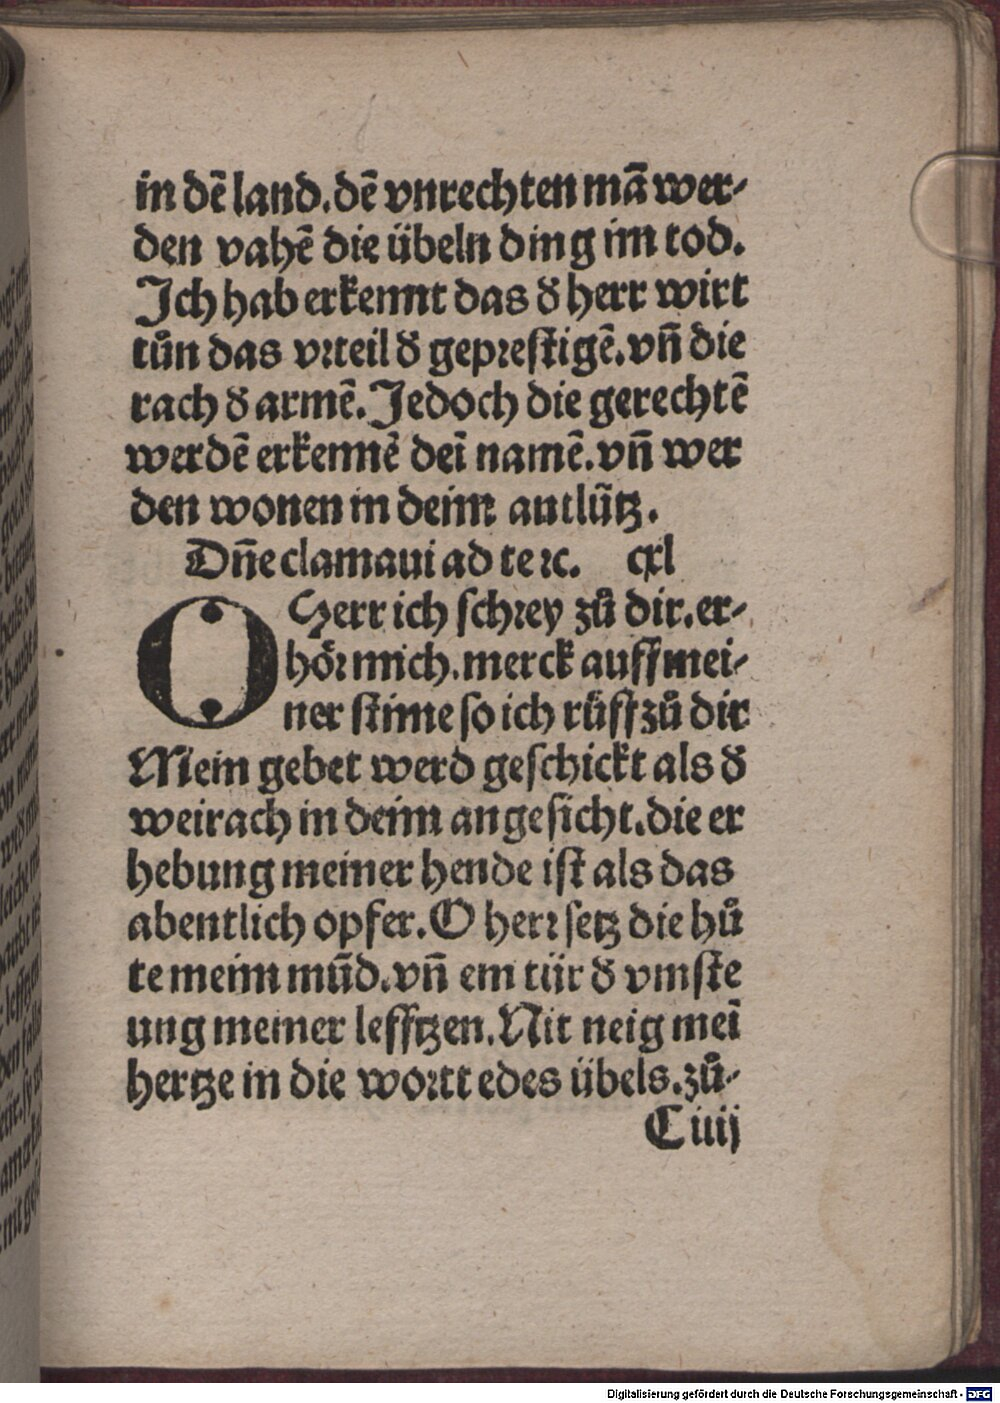 in dē land. dē vnrechten mā wer-
den vahē die übeln ding im tod.
Ich hab erkennt das d̕ herr wirt
tůn das vrteil d̕ geprestigē. vn̄ die
rach d̕ armē. Jedoch die gerechtē
werdē erkennē deī namē. vn̄ wer
den wonen in deim antlütz.
Dn̄e clamaui ad te ꝛc. cxl
O Herr ich schrey zů dir. er-
hör mich. merck auff mei-
ner stim̄e so ich rüff zů dir
Mein gebet werd geschickt als d̕
weirach in deim angesicht. die er
hebung meiner hende ist als das
abentlich opfer. O herr setz die hů
te meim mūd. vn̄ ein tür d̕ vmste
ung meiner lefftzen. Nit neig meī
hertze in die wortt edes übels. zů-
C iiij
Digitalisierung gefördert durch die Deutsche Forschungsgemeinschaft - DFG